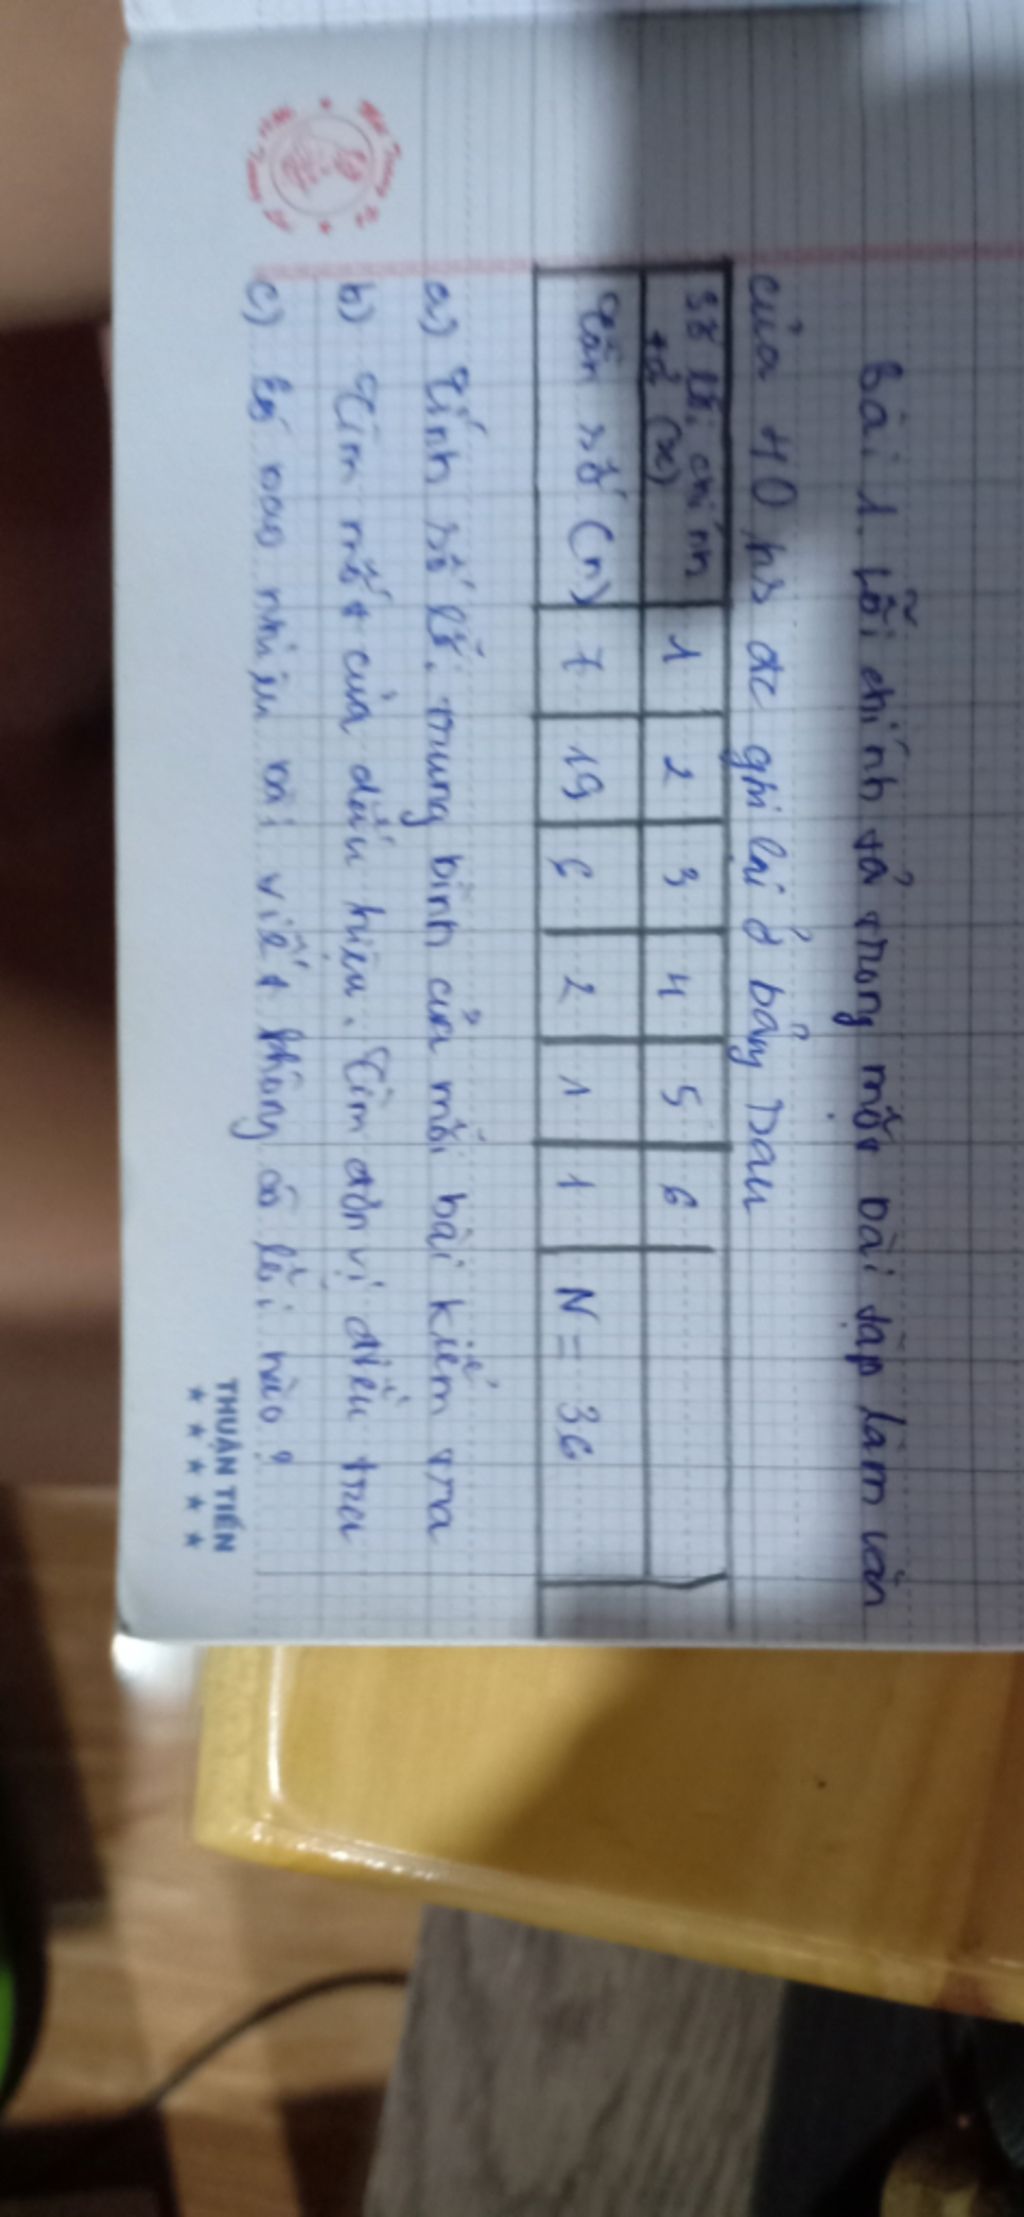 Bài 1. Lỗi chính tả trong một bài tập làm văn
của 40 hs đc ghi lại ở bảng sau
Số lỗi chính tả (x) 1 2 3 4 5 6
Tần số (n) 7 19 6 2 1 1 N = 36
a) Tính số lỗi trung bình của mỗi bài kiểm tra
b) Tìm mốt của dấu hiệu. Tìm đơn vị điều tra
c) Có bao nhiêu bài viết không có lỗi nào?
THUẬN TIẾN